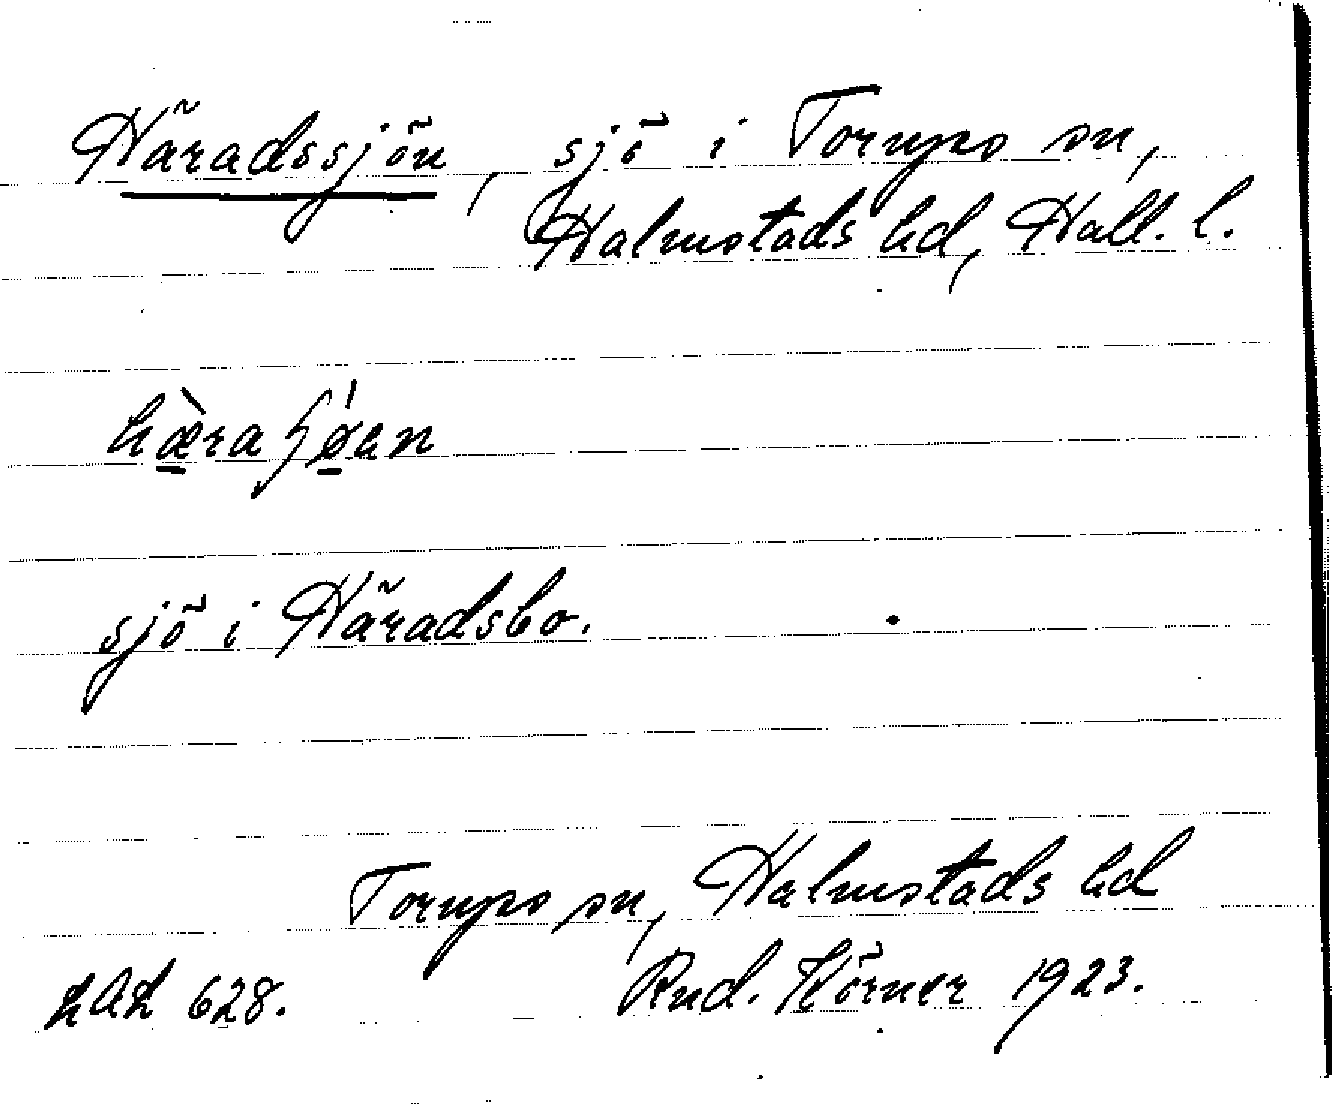 Häradssjön, sjö i Torups sn,
Halmstads hd, Hall. l.
hæ̀raʃǿen
sjö i Häradsbo.
Torups sn, Halmstads hd
LAL 628. Rud. Körner 1923.